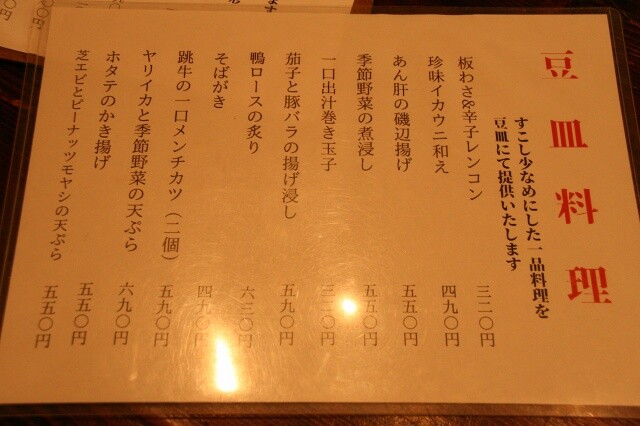 豆皿料理
すこし少なめにした一品料理を
豆皿にて提供いたします
板わさ&辛子レンコン 三二〇円
珍味イカウニ和え 四九〇円
あん肝の磯辺揚げ 五五〇円
季節野菜の煮浸し 五五〇円
一口出汁巻き玉子 三二〇円
茄子と豚バラの揚げ浸し 五九〇円
鴨ロースの炙り 六三〇円
そばがき 四九〇円
跳牛の一口メンチカツ（二個） 五九〇円
ヤリイカと季節野菜の天ぷら 六九〇円
ホタテのかき揚げ 五五〇円
芝エビとピーナッツモヤシの天ぷら 五五〇円
ます